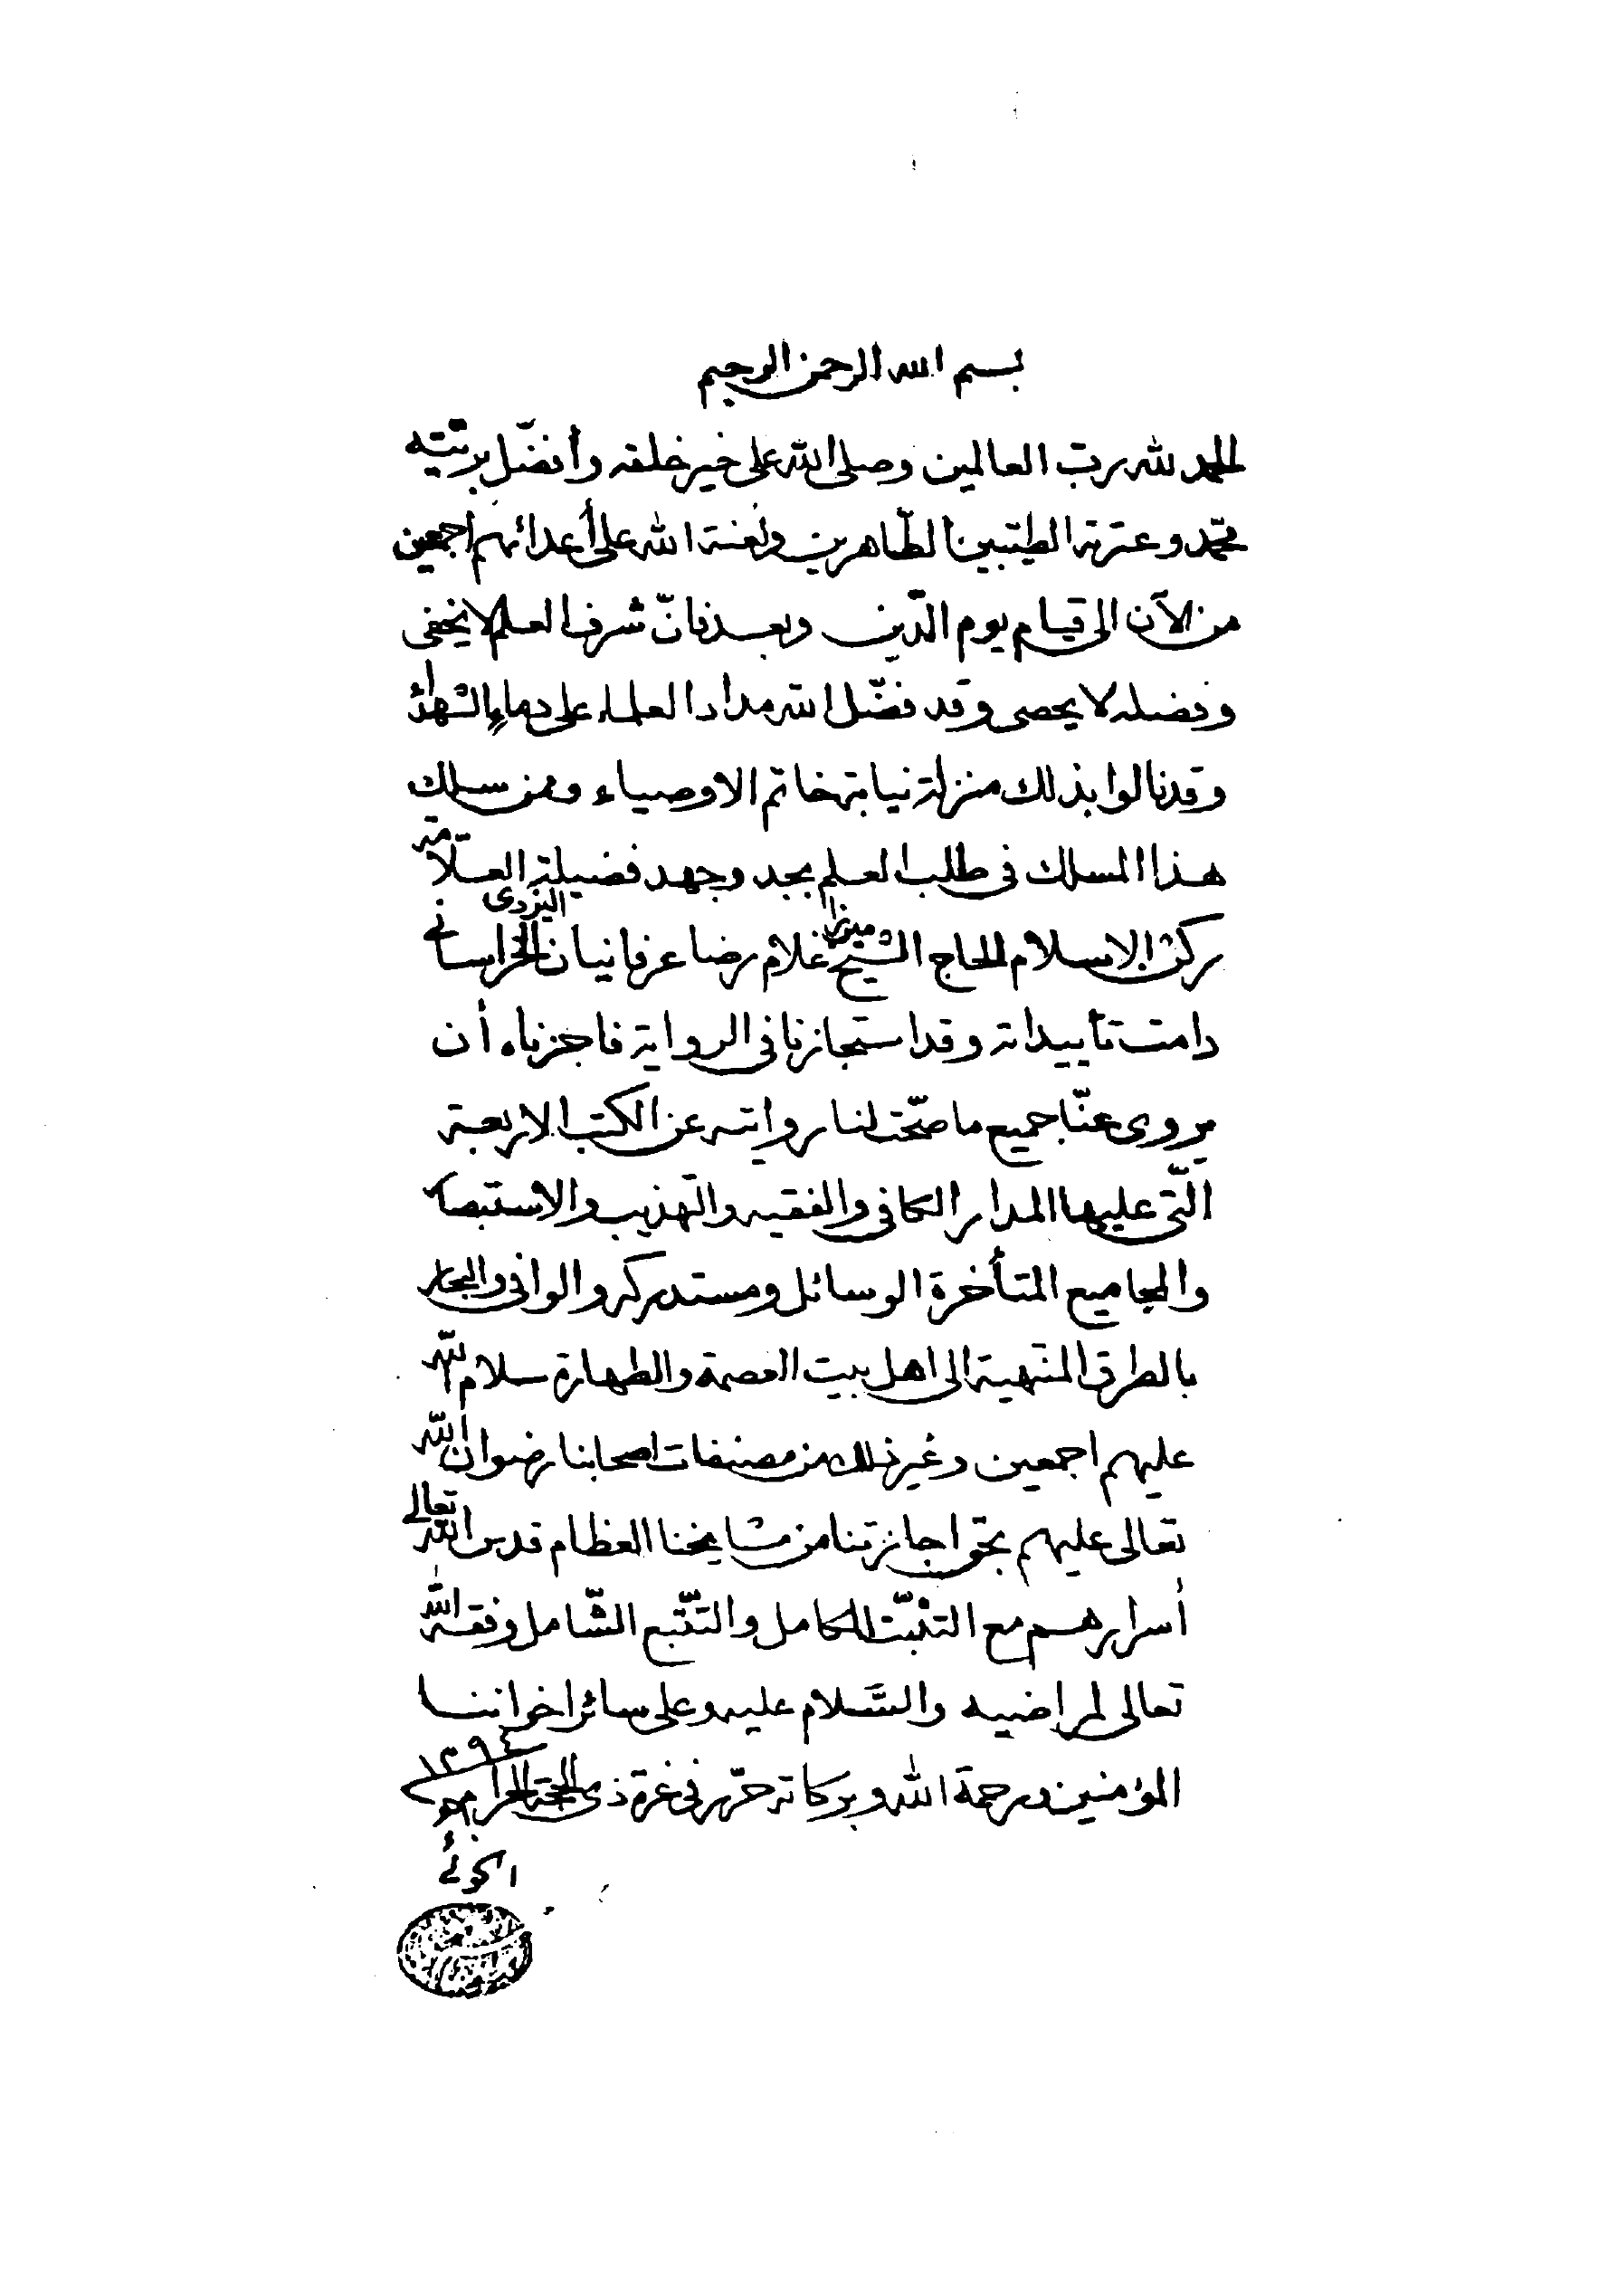 بسم الله الرحمن الرحيم
الحمد لله رب العالمين وصلى الله على خير خلقه وأفضل بريّته
محمّد وعترته الطيّبين الطّاهرين ولعنة الله على أعدائهم اجمعين
من الآن الى قيام يوم الدّين وبعد فانّ شرف العلم لا يخفى
وفضله لا يحصى وقد فضّل الله مداد العلماء على دماء الشهداء
وقد نالوا بذلك منزلة نيابة خاتم الاوصياء وممن سلك
هذا المسلك في طلب العلم بجد وجهد فضيلة العلّامة
ركن الاسلام الحاج الشيخ ميرزا غلام رضا عرفانيان اليزدى الخراساني
دامت تأييداته وقد استجازنا في الرواية فاجزناه أن
يروى عنّا جميع ما صحّت لنا روايته عن الكتب الاربعة
الّتي عليها المدار الكافي والفقيه والتهذيب والاستبصار
والمجاميع المتأخرة الوسائل ومستدركه والوافي والبحار
بالطرق المنتهية الى اهل بيت العصمة والطهارة سلام الله
عليهم اجمعين وغير ذلك من مصنفات اصحابنا رضوان الله
تعالى عليهم بحق اجازتنا من مشايخنا العظام قدس الله تعالى
أسرارهم مع التثبّت الكامل والتّتبع الشّامل وفقه الله
تعالى لمراضيه والسّلام عليه وعلى سائر اخواننا
المؤمنين ورحمة الله وبركاته حرّر في غرة ذي الحجة الحرام ١٣٩٤
الخوئي